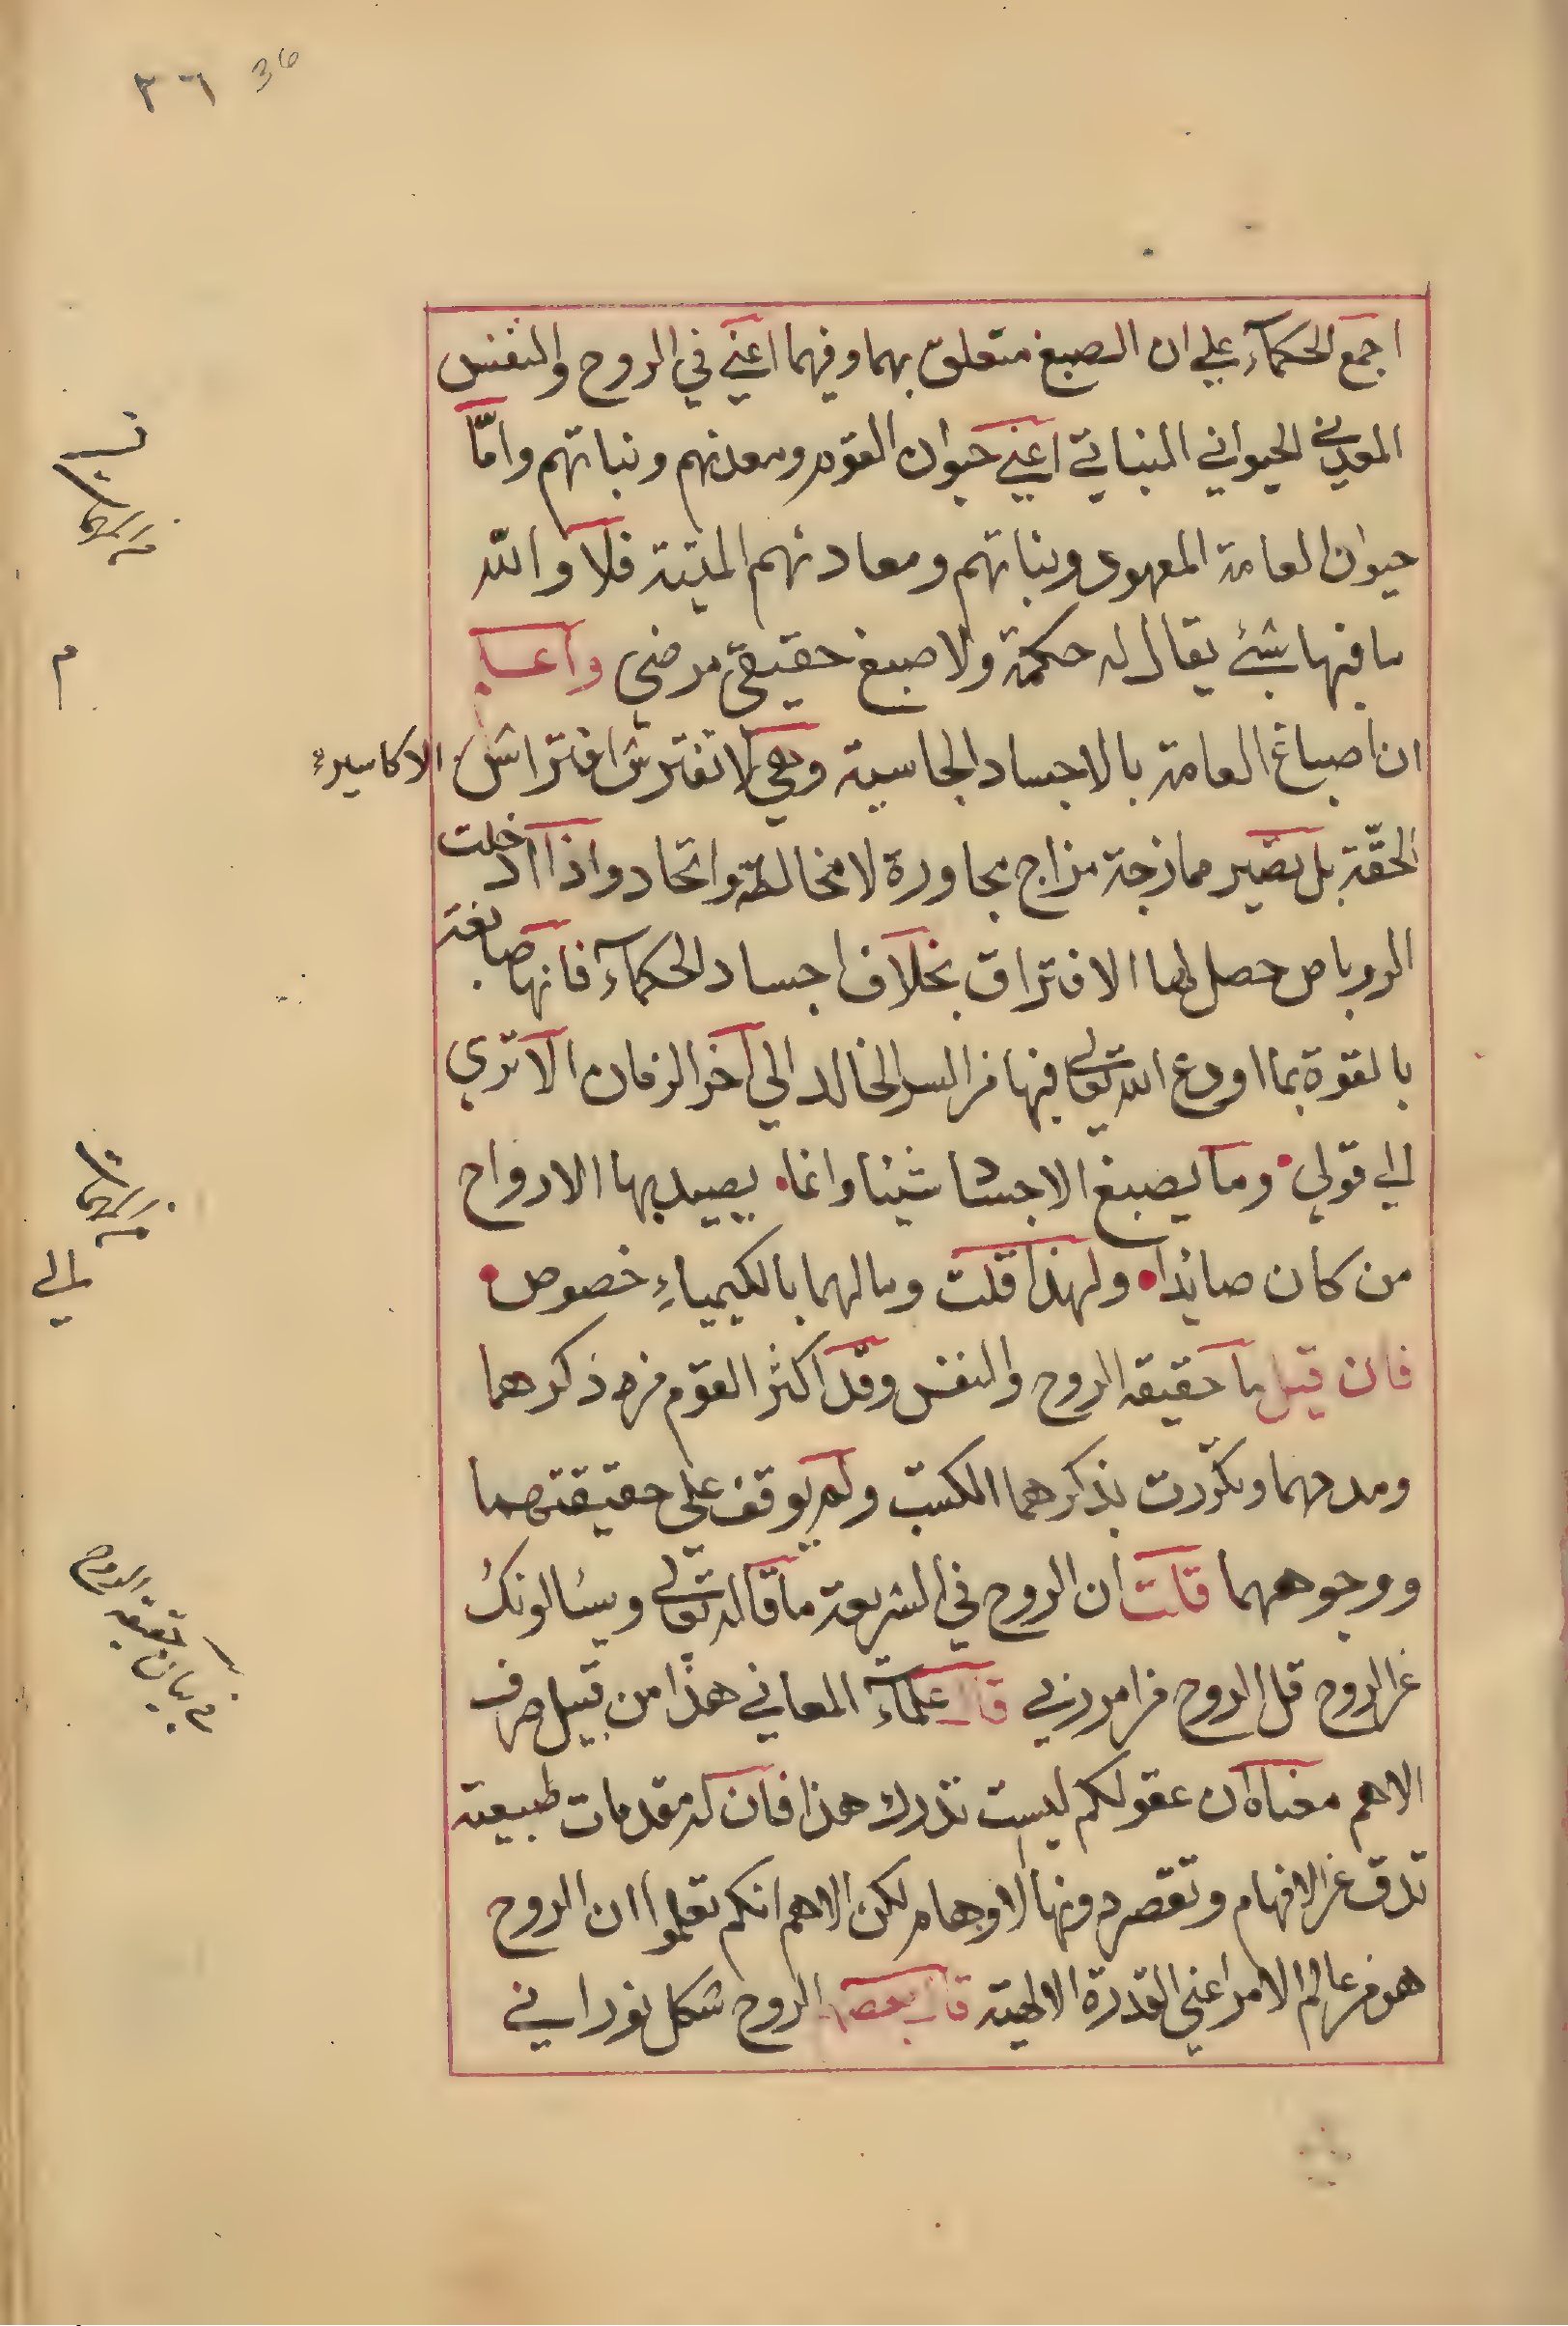 ٣٦ 36
اجمع الحكمآء علي ان الصبغ متعلق بهما وفيهما اعني في الروح والنفس
المعدني الحيواني النباتي اعني حيوان القوم ومعدنهم ونباتهم وامّا
حيوان العامة المعهود ونباتهم ومعادنهم الميتة فلا والله
ما فيها شئ يقال له حكمة ولا صبغ حقيقي مرضي واعلم
ان اصباغ العامة بالاجساد الجاسية وهي لا تفترش افتراش الاكاسير
الحقّة بل تصير ممازجة مزاج مجاورة لا مخالطة واتحاد واذا ادخلت
الروباص حصل لها الافتراق بخلاف اجساد الحكمآء فانها صابغة
بالقوة بما اودع الله تعالي فيها من السر الخالد الي آخر الزمان الا تري
الي قولي وما يصبغ الاجساد شيئا وانما يصيد بها الارواح
من كان صائدا ولهذا قلت وما لهما بالكيمياءِ خصوص
فان قيل ما حقيقه الروح والنفس وقد اكثر القوم من ذكرهما
ومدحهما وتكرّرت بذكرهما الكتب ولم يوقف علي حقيقتهما
ووجوههما قلت ان الروح في الشريعة ما قاله تعالي ويسالونك
عن الروح قل الروح من امر ربي قال علمآء المعاني هذا من قبيل صرف
الاهم معناه ان عقولكم ليست تدرك هذا فان له مقدمات طبيعية
تدق عن الافهام وتقصر دونها الاوهام لكن الاهم انكم تعلموا ان الروح
هو من عالم الامر اعني القدرة الالهية قال بعضهم الروح شكل نوراني
م
الي
في بيان حقيقة الروح